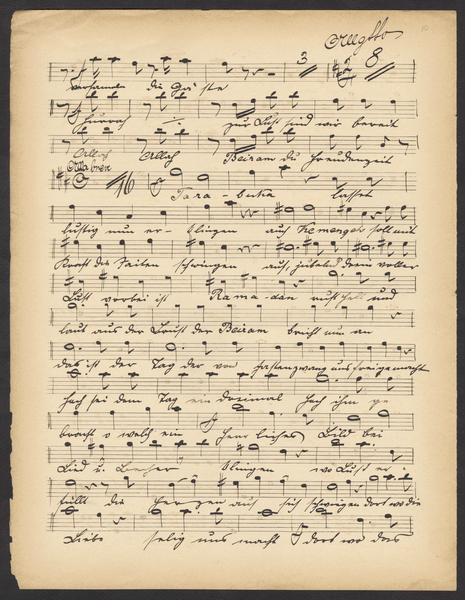 Allegtto
3 2 8
versamelt die Gäste
Hurrah zur Lust sind wir bereit
Allah Allah Beiram du Freudenzeit
Alla breve
16
Tara - buka lasset
lustig nun er - klingen auf Kemengeh soll mit
Kraft die Saiten schwingen auf, jubelnd denn voller
Lust vorbei ist Rama - dan ruft hell und
laut aus der Brust der Beiram bricht nun an
das ist der Tag der von Fastenzwang uns frei gemacht
hoch sei dem Tag ein dreimal hoch ihm ge
bracht o welch ein herrliches Bild bei
Lied u. Becher Klingen wo Lust er
füllt die Herzen auf sich schwingen dort wo die
Liebe selig uns macht dort wo das